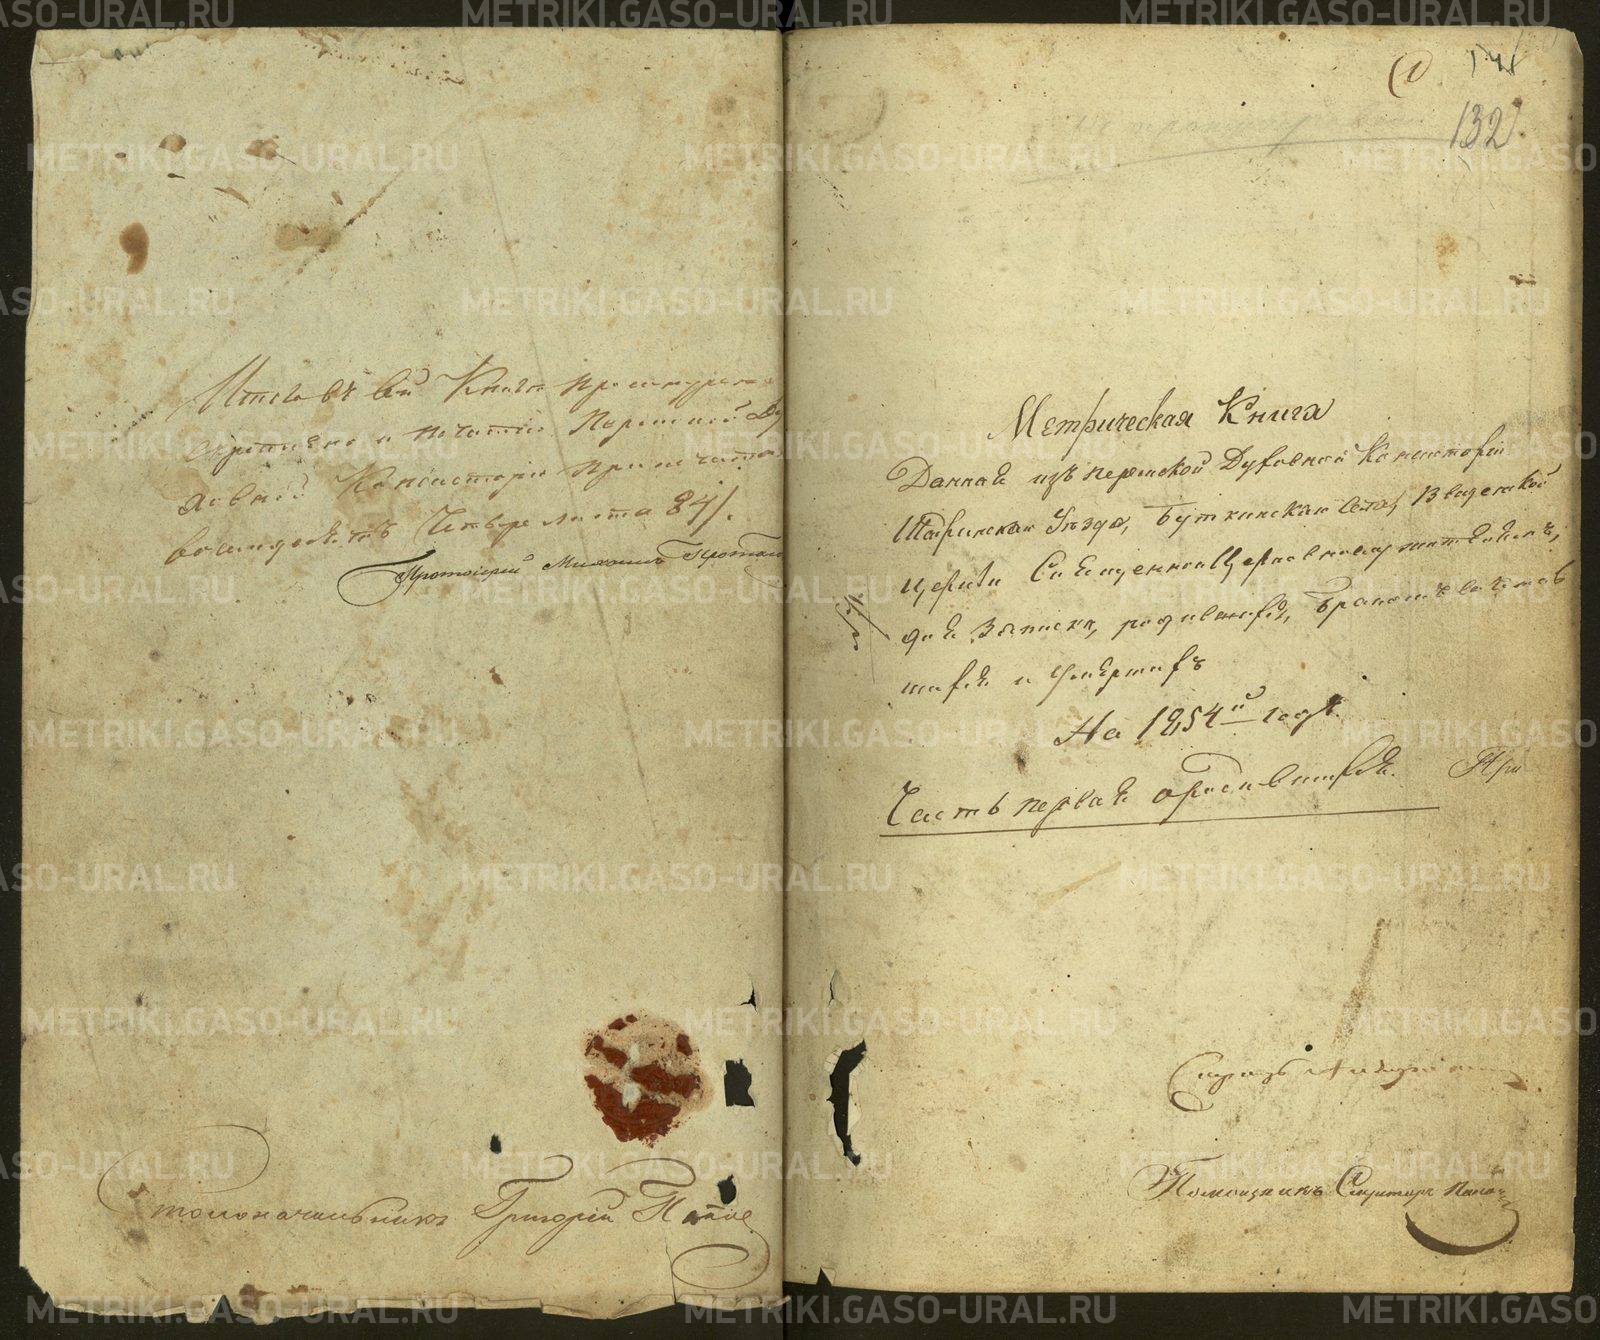 Итого въ сей Книге прошнурено
скрепленно и печатью Пермской Ду
ховной Консисторіи припечата
восемдесятъ четыре листа 84/.
Протоіерей Михаилъ
Столоначальникъ Григорій Попов
(1)
132
Метрическая Книга
Данная изъ пермской Духовной Консисторіи
Шадринскаго Уезда, Буткинскаго села, Введенской
церкви Священноцерковнослужителямъ,
для записки, родившихся, бракомъ сочетав
шихся и умершихъ
На 1854й годъ.
Часть первая о родившихся.
Помощникъ Секретаря Попов
METRIKI.GASO-URAL.RU